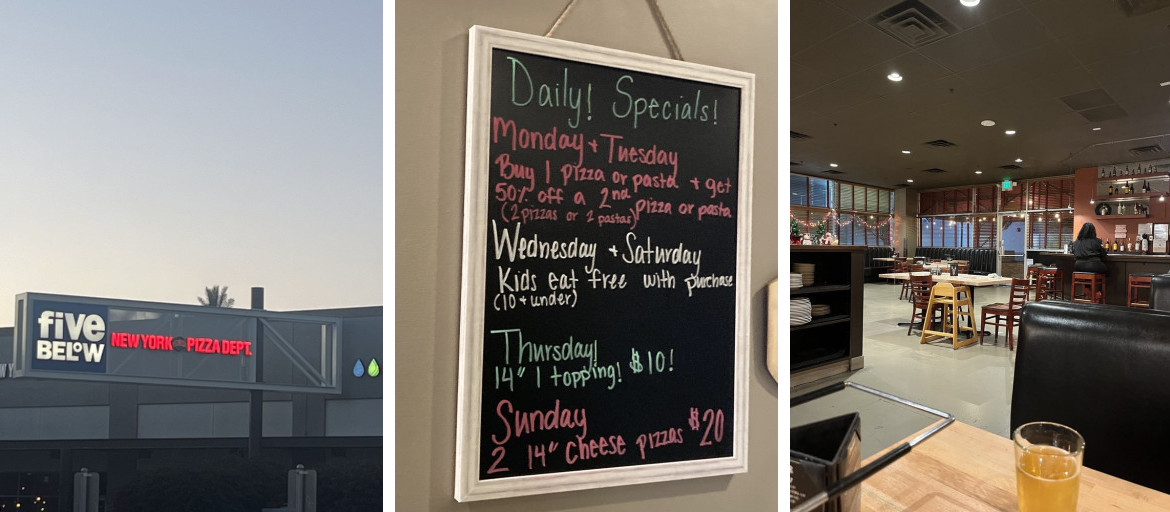 five
BELOW
NEW YORK PIZZA DEPT.
Daily! Specials!
Monday + Tuesday
Buy 1 pizza or pasta + get
50% off a 2nd pizza or pasta
(2 pizzas or 2 pastas)
Wednesday + Saturday
Kids eat free with purchase
(10 + under)
Thursday!
14" 1 topping! $10!
Sunday
2 14" Cheese pizzas $20